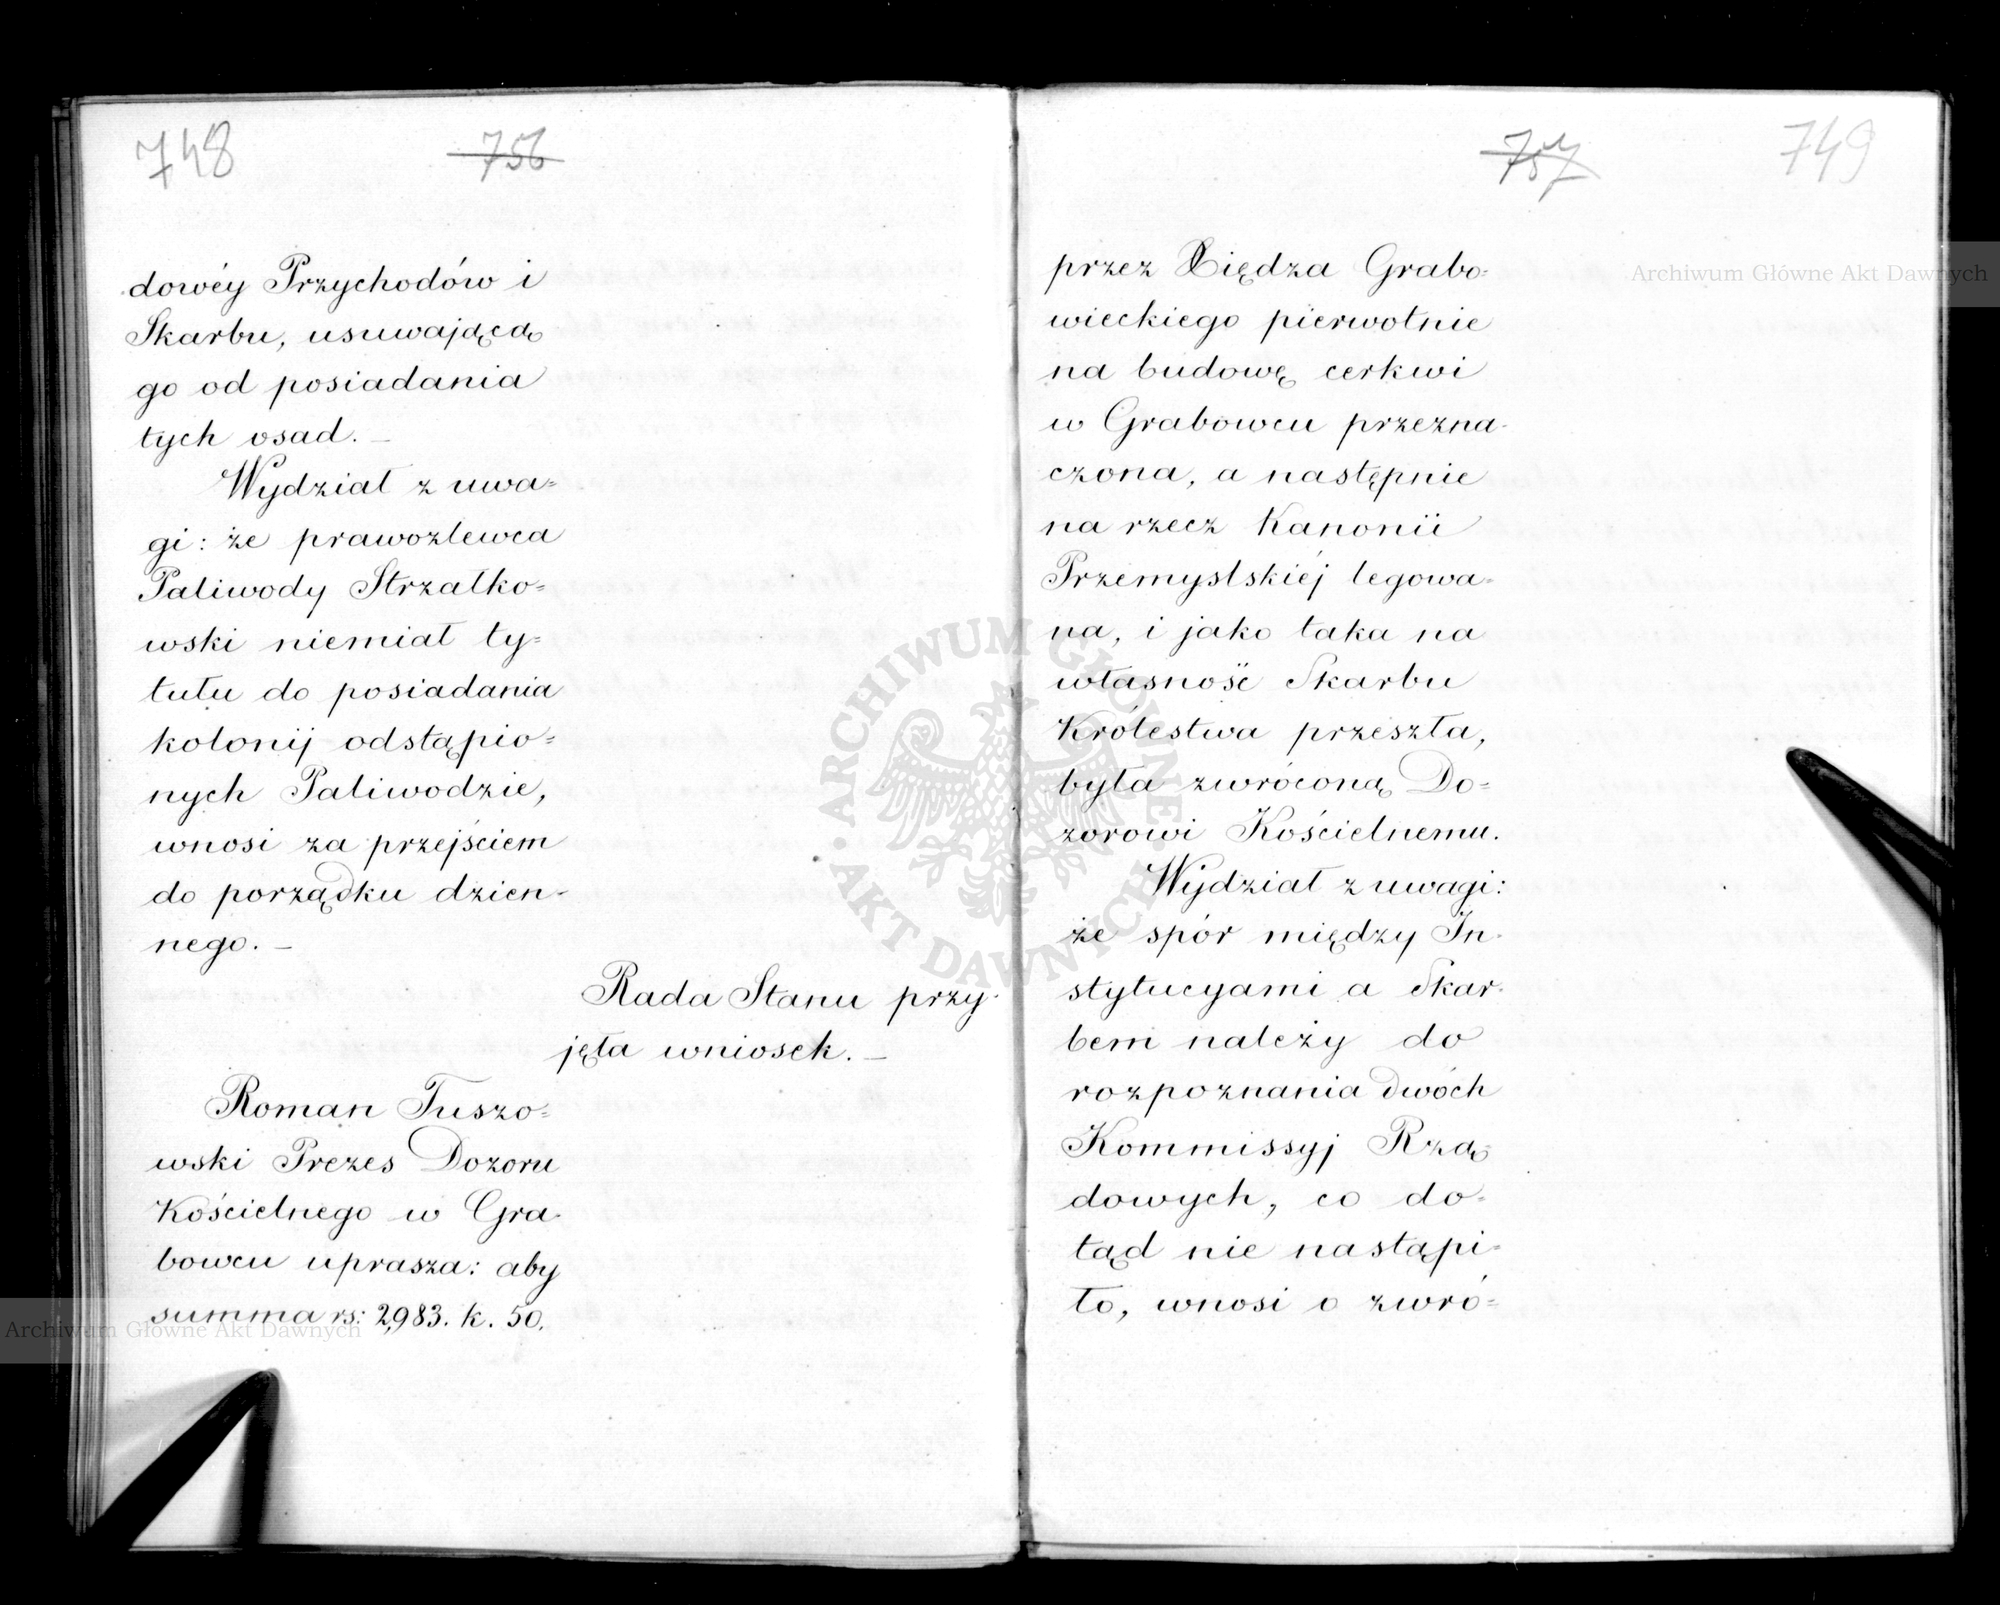 748
756
dowéy Przychodów i
Skarbu, usuwającą
go od posiadania
tych osad. —
Wydział z uwa=
gi: że prawozlewca
Paliwody Strzałko=
wski niemiał ty=
tułu do posiadania
kolonij odstąpio=
nych Paliwodzie,
wnosi za przejściem
do porządku dzien-
nego. —
Rada Stanu przy-
jęła wniosek. —
Roman Tuszo=
wski Prezes Dozoru
Kościelnego w Gra-
bowcu uprasza: aby
summa rs: 2,983. k. 50.
757
749
przez Xiędza Grabo=
wieckiego pierwotnie
na budowę cerkwi
w Grabowcu przezna-
czona, a następnie
na rzecz Kanonii
Przemyslskiéj legowa-
na, i jako taka na
własność Skarbu
Królestwa przeszła,
była zwróconą Do=
zorowi Kościelnemu.
Wydział z uwagi:
że spór między In-
stytucyami a Skar-
bem należy do
rozpoznania dwóch
Kommissyj Rzą=
dowych, co do=
tąd nie nastąpi=
ło, wnosi o zwró=
Archiwum Główne Akt Dawnych
Archiwum Główne Akt Dawnych
ARCHIWUM GŁÓWNE · AKT DAWNYCH